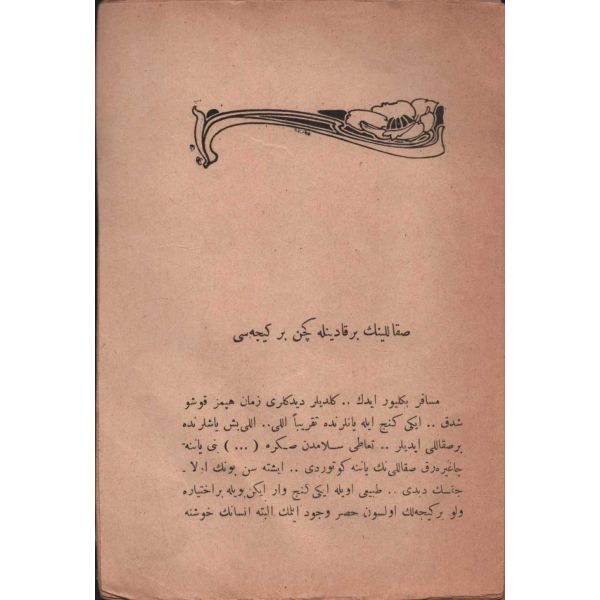 صقاللينك بر قادينله كچن بر كيجه‌سى
مسافر بكليور ايدك .. كلديلر ديدكلرى زمان هپمز قوشو
شدق .. ايكى كنج ايله يانلرنده تقريباً اللى .. اللى بش ياشلرنده
بر صقاللى ايديلر .. تعاطئ سلامدن صكره ( ... ) بنى ياننه
چاغيره‌رق صقاللى‌نك ياننه كوتوردى .. ايشته سن بونك اولا ـ
جقسك ديدى .. طبيعى اويله ايكى كنج وار ايكن بويله بر اختياره
ولو بر كيجه‌لك اولسون حصر وجود ايتمك البته انسانك خوشنه